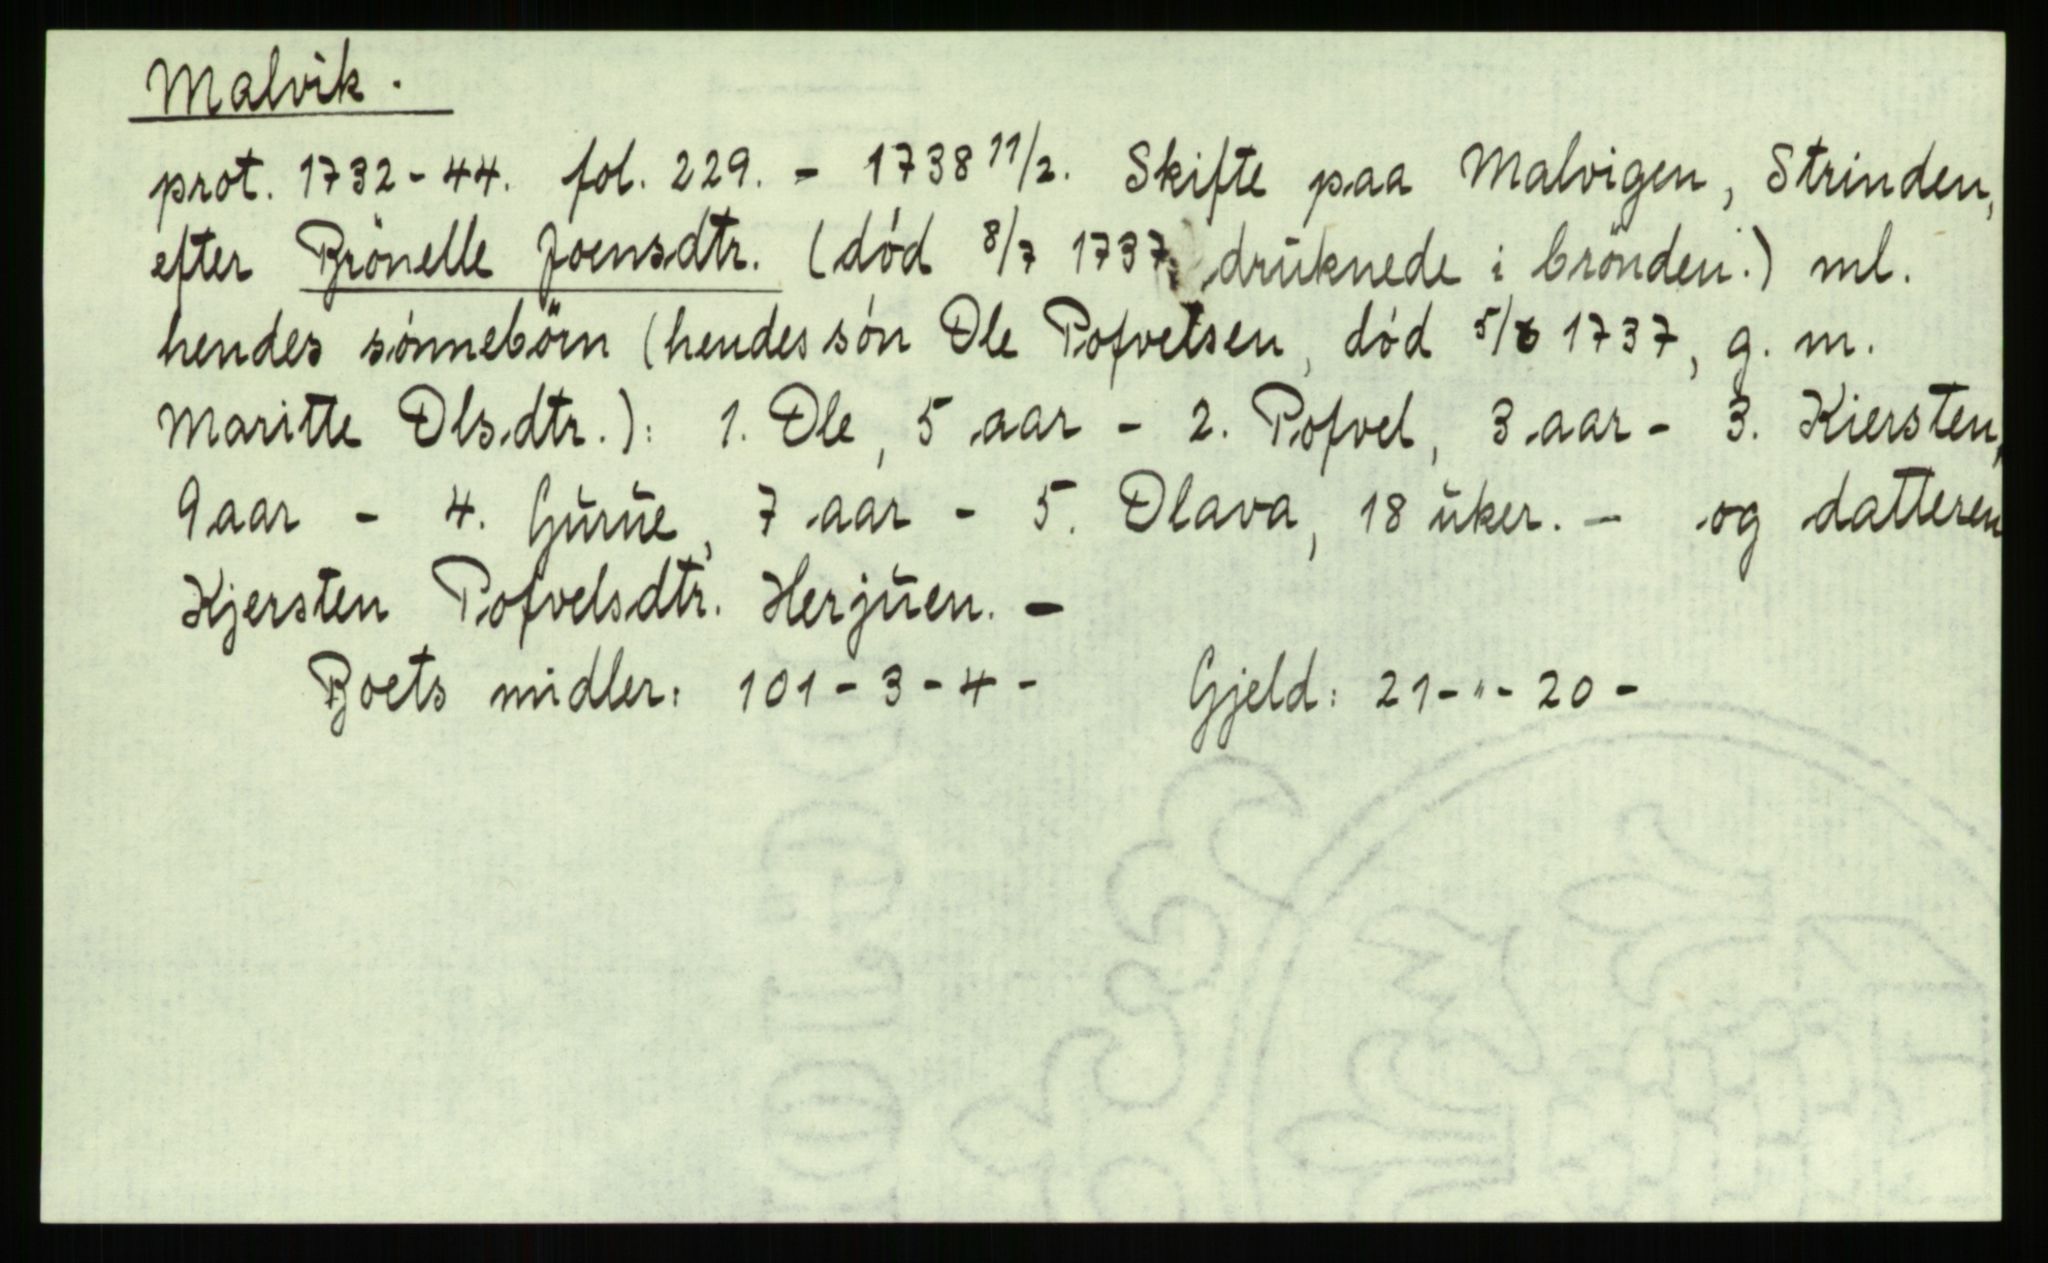 Malvik.
prot. 1732-44. fol. 229. - 1738 11/2. Skifte paa Malvigen, Strinden,
efter Brönelle Joensdtr. (död 8/7 1737, drŭknede i brönden.) ml.
hendes sönnebörn (hendes sön Ole Pofvelsen, död 5/6 1737, g. m.
Maritte Olsdtr.): 1. Ole, 5 aar - 2. Pofvel, 3 aar - 3. Kiersten,
9 aar - 4. Gŭrŭe, 7 aar - 5. Olava, 18 ŭker. - og datteren
Kjersten Pofvelsdtr. Herjŭen. -
Boets midler: 101 - 3 - 4 - Gjeld: 21 - " - 20 -